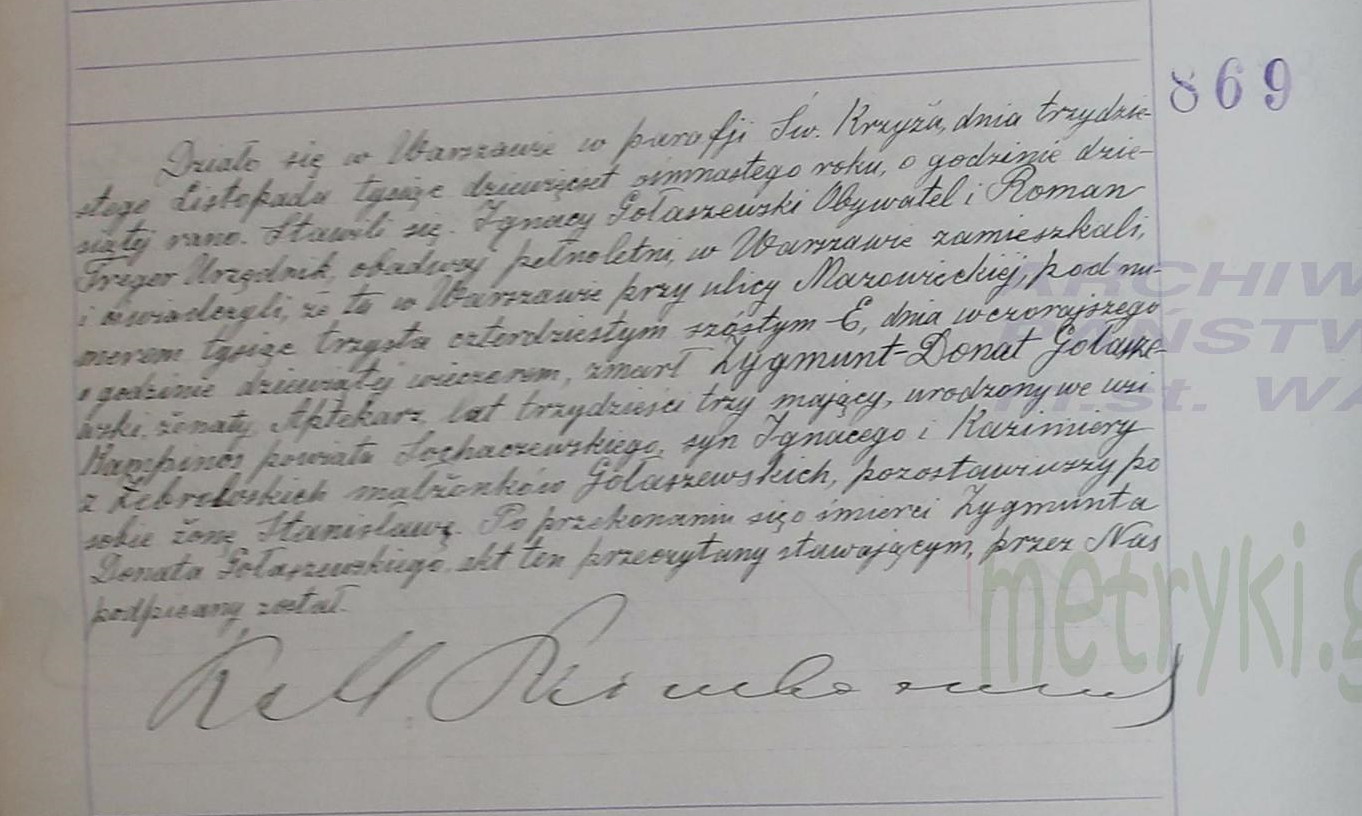 869
Działo się w Warszawie w parafji Św. Krzyża, dnia trzydzie-
stego Listopada tysiąc dziewięćset osimnastego roku, o godzinie dzie-
siątej rano. Stawili się. Ignacy Gołaszewski Obywatel i Roman
Treger Urzędnik, obadwaj pełnoletni, w Warszawie zamieszkali,
i oświadczyli, że tu w Warszawie przy ulicy Mazowieckiej, pod nu-
merem tysiąc trzysta czterdziestym szóstym -E, dnia wczorajszego
o godzinie dziewiątej wieczorem, zmarł Zygmunt-Donat Gołasze-
wski, żonaty, Aptekarz, lat trzydzieści trzy mający, urodzony we wsi
Kampinos powiatu Sochaczewskiego, syn Ignacego i Kazimiery
z Żebrowskich małżonków Gołaszewskich, pozostawiwszy po
sobie żonę Stanisławę. Po przekonaniu się o śmierci Zygmunta
Donata Gołaszewskiego, akt ten przeczytany stawającym, przez Nas
podpisany został.
ARCHIW
PAŃSTW
m.st. WA
metryki.g